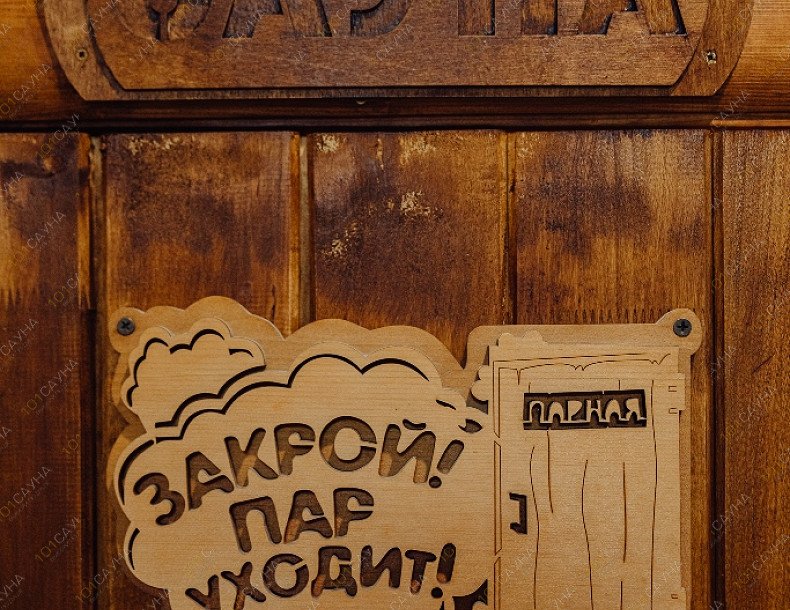 САУНА
ПАРНАЯ
ЗАКРОЙ!
ПАР
УХОДИТ!
101САУНА